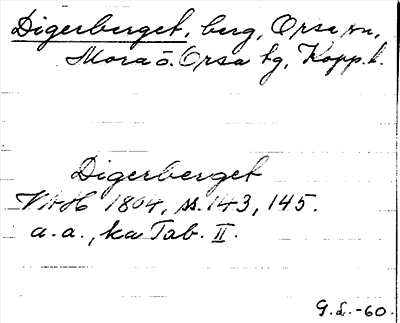 Digerberget, berg, Orsa sn,
Mora o. Orsa tg, Kopp. l.
Digerberget
VAH 1804, ss. 143, 145.
a. a., ka Tab. II.
G. L. -60.